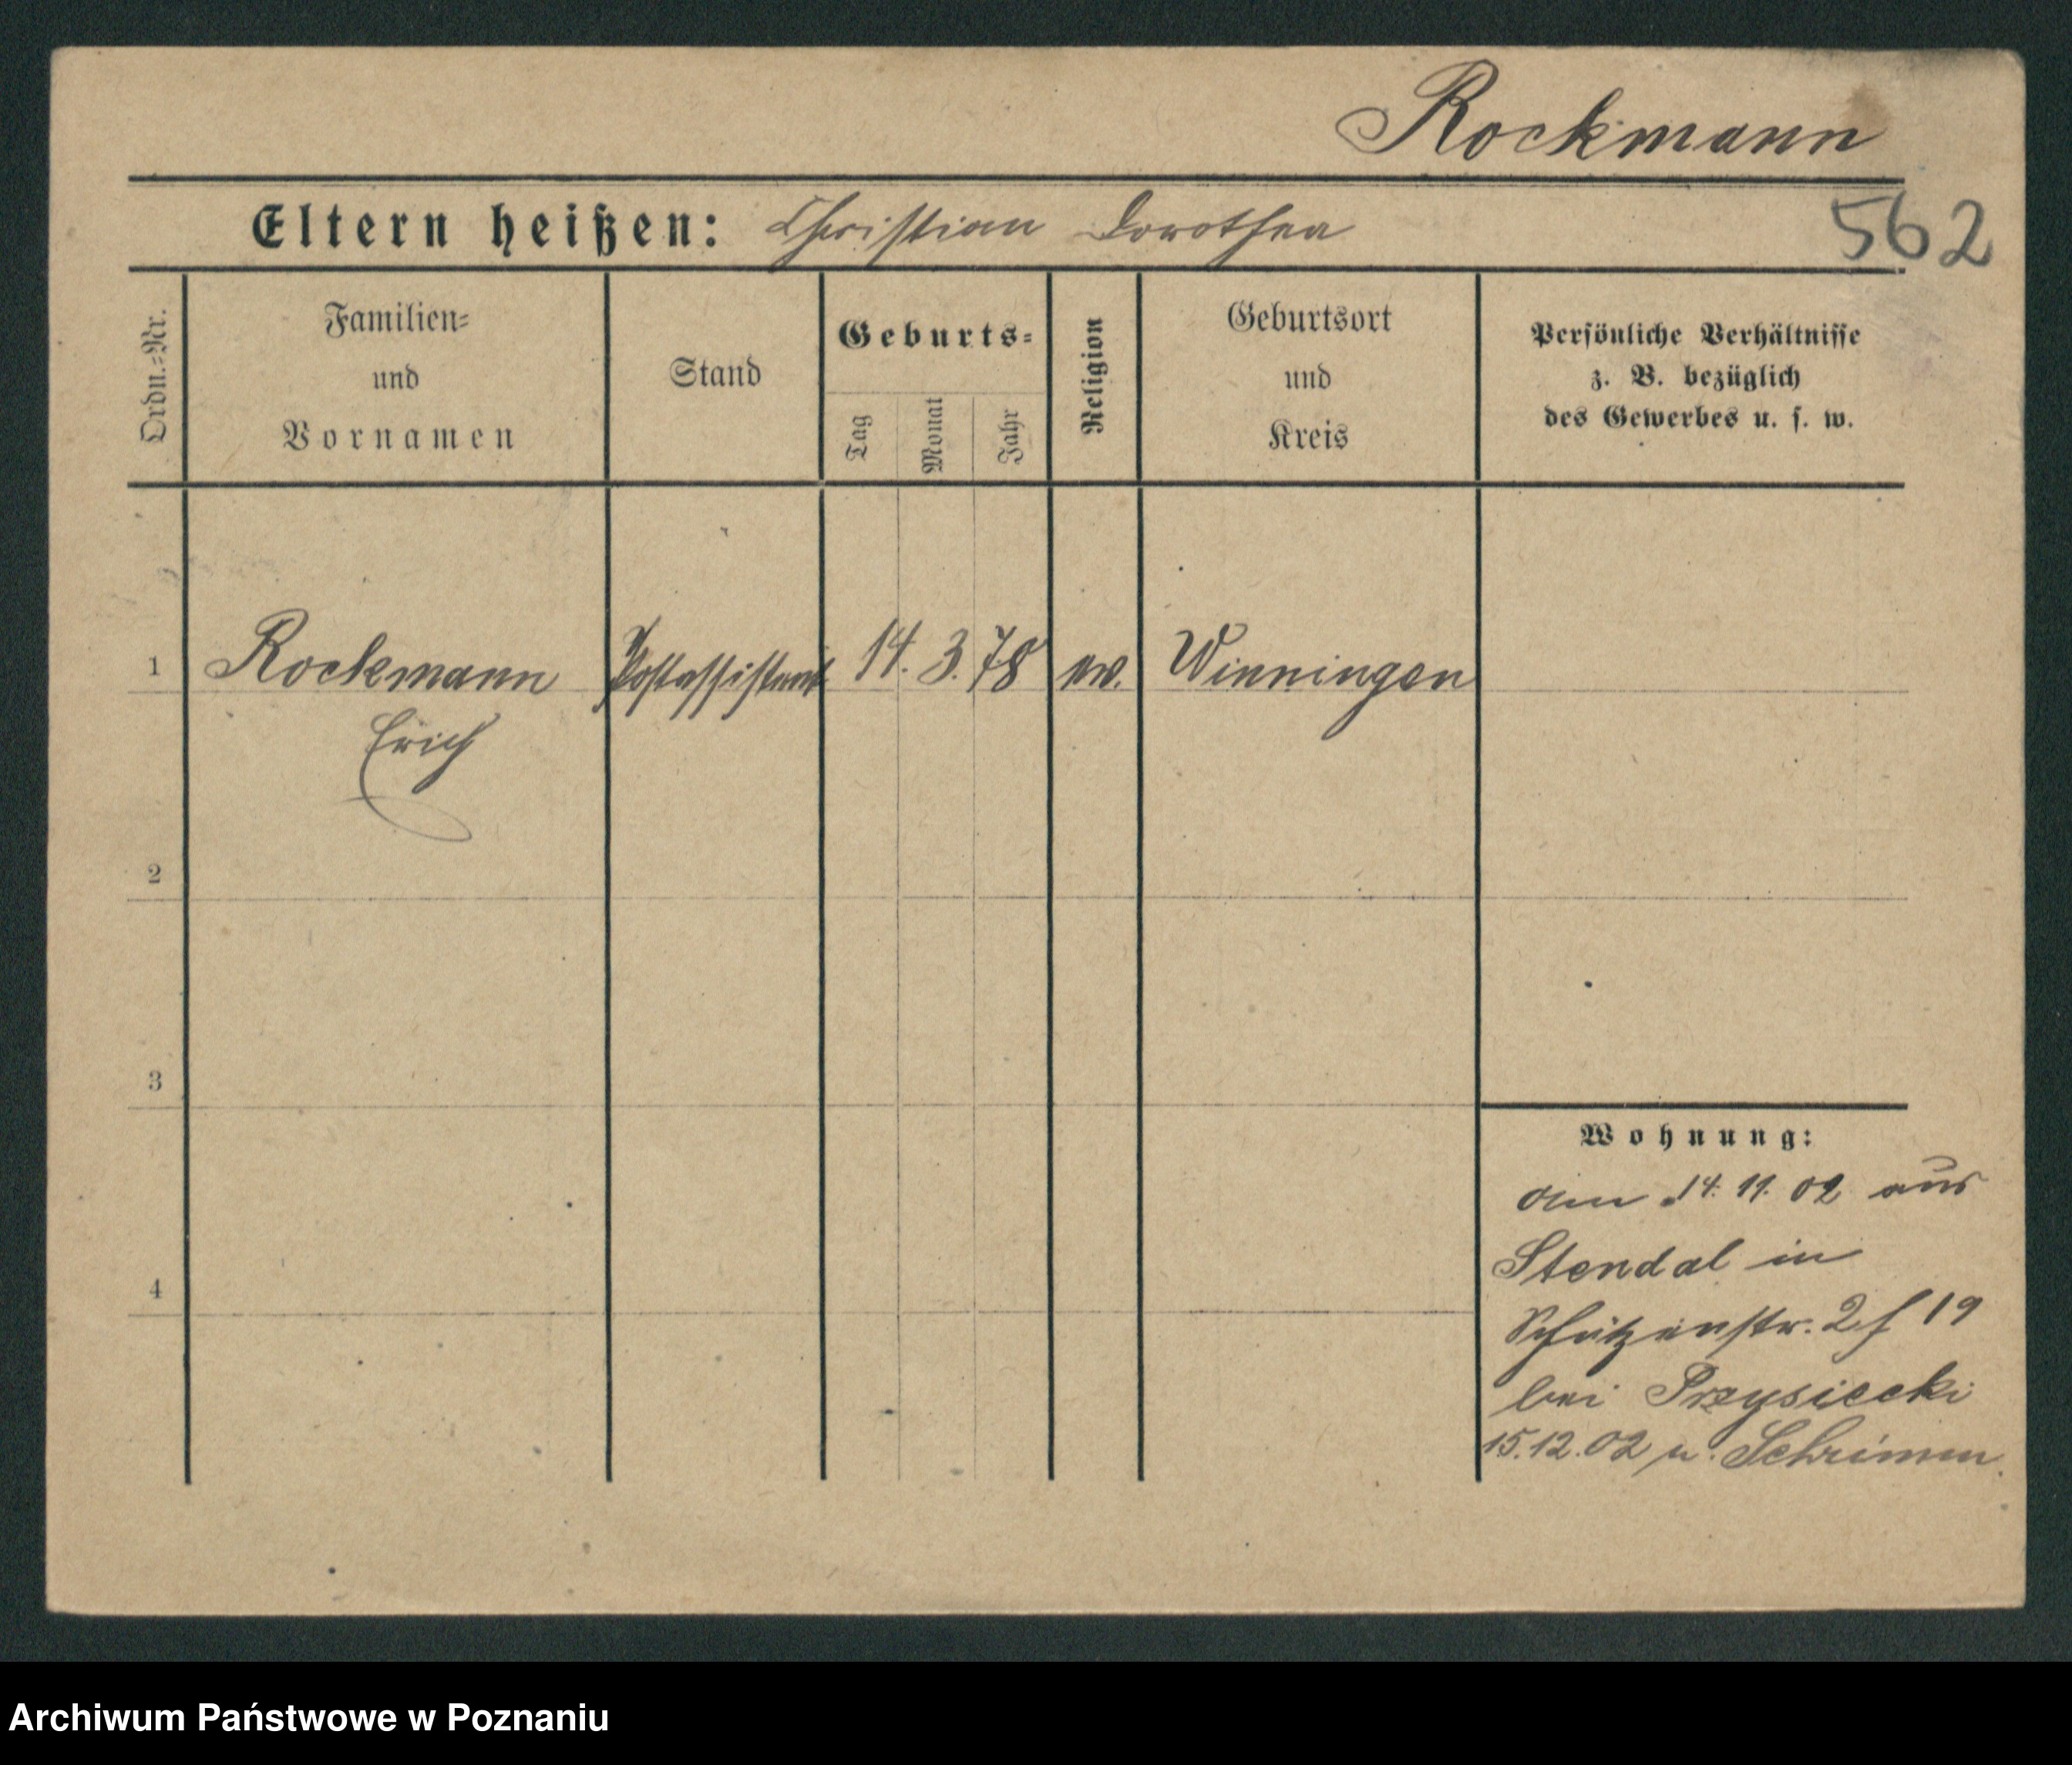 Rockmann
Eltern heißen: Christian Dorothea
562
Ordn.=Nr.
Familien=
und
Vornamen
Stand
Geburts=
Tag
Monat
Jahr
Religion
Geburtsort
und
Kreis
Persönliche Verhältnisse
z. B. bezüglich
des Gewerbes u. s. w.
1 Rockmann Postassistent 14. 3. 78 ev. Winningen
Erich
2
3
4
Wohnung:
Am 14. 11. 02 aus
Stendal in
Schützenstr. 19
bei Przysiecki
15.12.02 n. Schrimm.
Archiwum Państwowe w Poznaniu